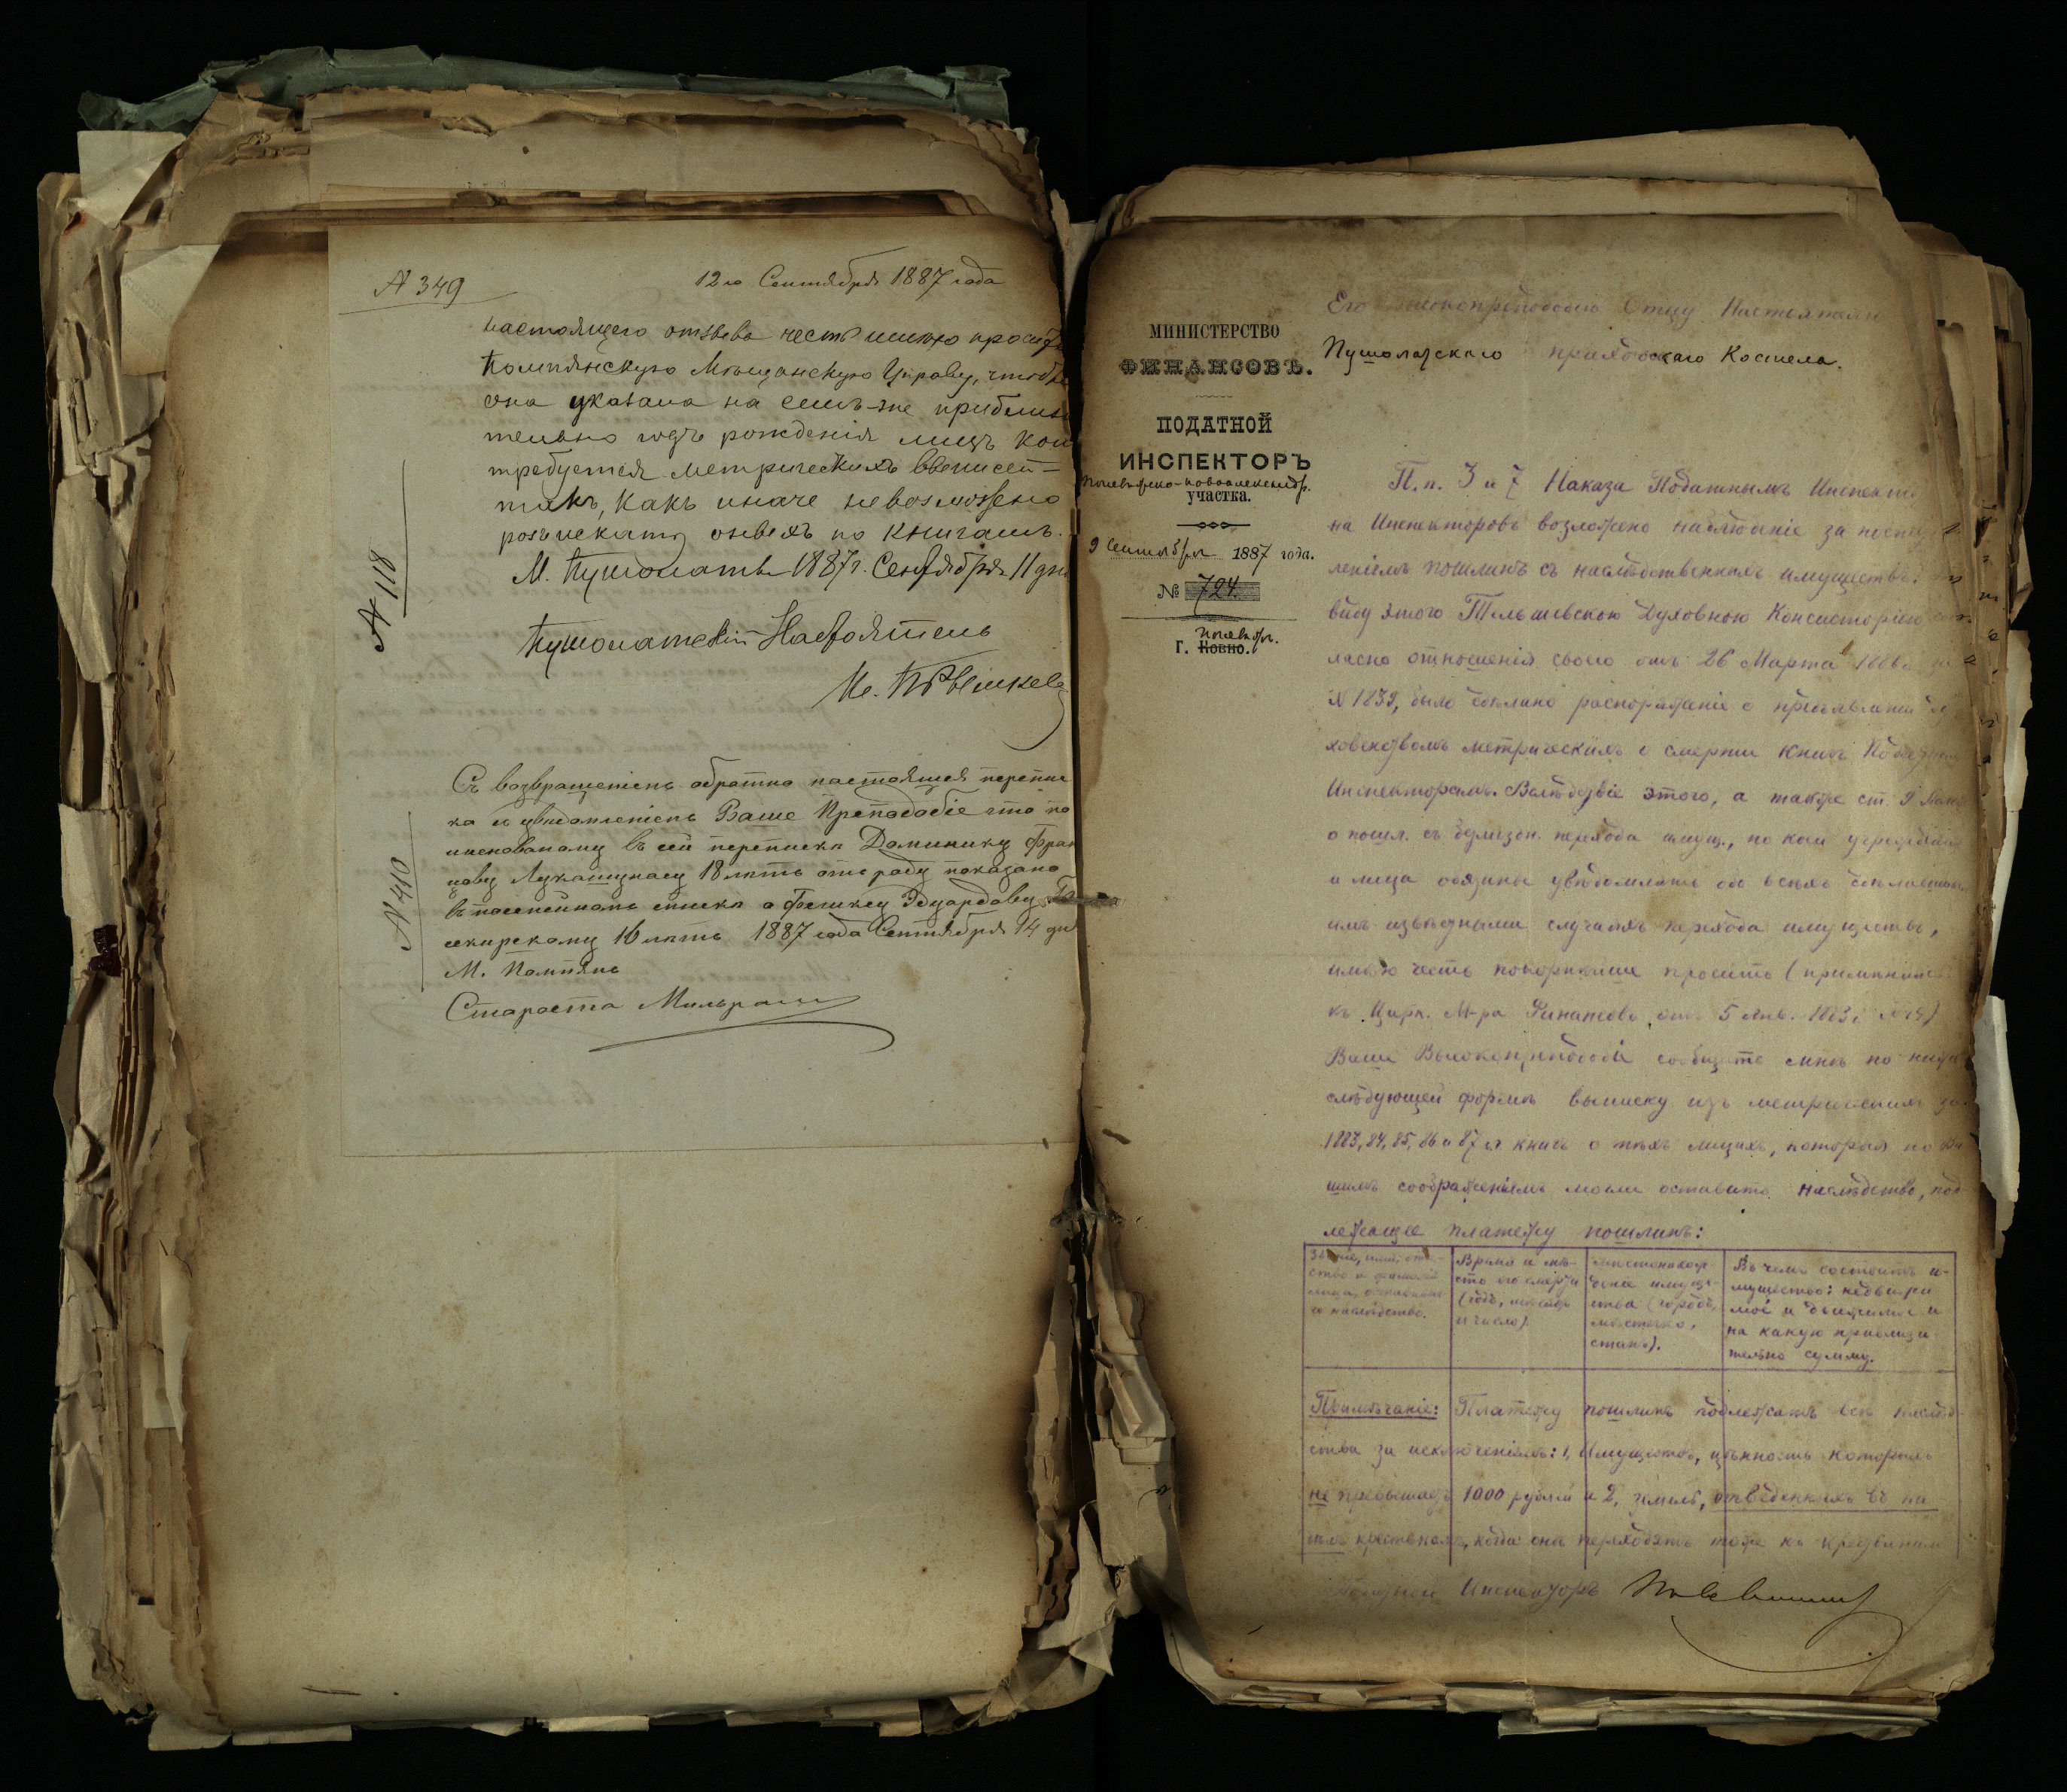 № 349
12го Сентября 1887 года
настоящего отзыва честь имею просить
Помпянскую Мещанскую Управу, чтобы
она указала на семъ-же приблизи
тельно годъ рожденія лицъ кои
требуется метрическихъ выписей –
такъ, какъ иначе невозможно
розыскать оныхъ по книгамъ.
М. Пушолаты 1887 г. Сентября 11 дня
Пушолатскій Настоятель
№ 118
Съ возвращеніемъ обратно настоящея перепис
ка и увѣдомленіемъ Ваше Преподобіе что по
имянованому въ сей переписки Доминику Фран
цову Лукашунасу 18 лѣтъ отъ роду показано
въ посемейномъ списки а Феликсу Эдуардову
16 лѣтъ 1887 года Сентября 14 дня
М. Помпяны
Староста
№ 410
МИНИСТЕРСТВО
ФИНАНСОВЪ.
ПОДАТНОЙ
ИНСПЕКТОРЪ
Поневѣжско-новоалександр.
участка.
9 Сентября 1887 года.
№ 724.
Поневѣж.
Г. Ковно.
Его Высокопреподобію Отцу Настоятелю
Пушолатскаго приходскаго Костела.
П.п. 3 и 7 Наказа Податнымъ Инспект
на Инспекторовъ возложено наблюденіе за посту
леніемъ пошлинъ съ наслѣдственныхъ имуществъ.
виду этого Тельшевскою Духовною Консисторіею, сог
ласно отношенія своего отъ 26 Марта 1886 г. за
№ 1832, было сдѣлано распоряженіе о предъявленіи ду
ховенствомъ метрическихъ о смерти книгъ Податнымъ
Инспекторамъ. Вслѣдствіе этого, а также ст. 9
о пошл. съ безмездн. перехода имущ., по коей учрежденія
и лица обязаны увѣдомлять обо всѣхъ сдѣлавшихся
имъ извѣстными случаяхъ перехода имуществъ,
имѣю честь покорнѣйше просить (примѣнительно
къ Цирк. М-ра Финансовъ отъ 5 Янв. 1883 г.
Ваше Высокопреподобіе сообщить мнѣ по ниже
слѣдующей формѣ выписку изъ метрическихъ за
1883, 84, 85, 86 и 87 г. книгъ о тѣхъ лицахъ, которыя по Ва
шимъ соображеніямъ могли оставить наслѣдство, под
лежащее платежу пошлинъ:
Званіе, имя, отче-
ство и фамилія
лица, оставивша-
го наслѣдство.
Время и мѣ-
сто его смерти
(годъ, мѣсяцъ
и число)
Мѣстонахож-
деніе имуще-
ства (городъ,
мѣстечко,
станъ).
Въ чемъ состоитъ и-
мущество: недвижи
мое и движимое и
на какую приблизи
тельно сумму.
Примѣчаніе: Платежу пошлинъ подлежатъ всѣ наслѣд-
ства за исключеніемъ: 1, Имуществъ, цѣнность которыхъ
не превышаетъ 1000 рублей и 2, земель, отведенныхъ въ на
дѣлъ крестьянамъ, когда онѣ переходятъ тоже къ крестьянамъ
Податной Инспекторъ